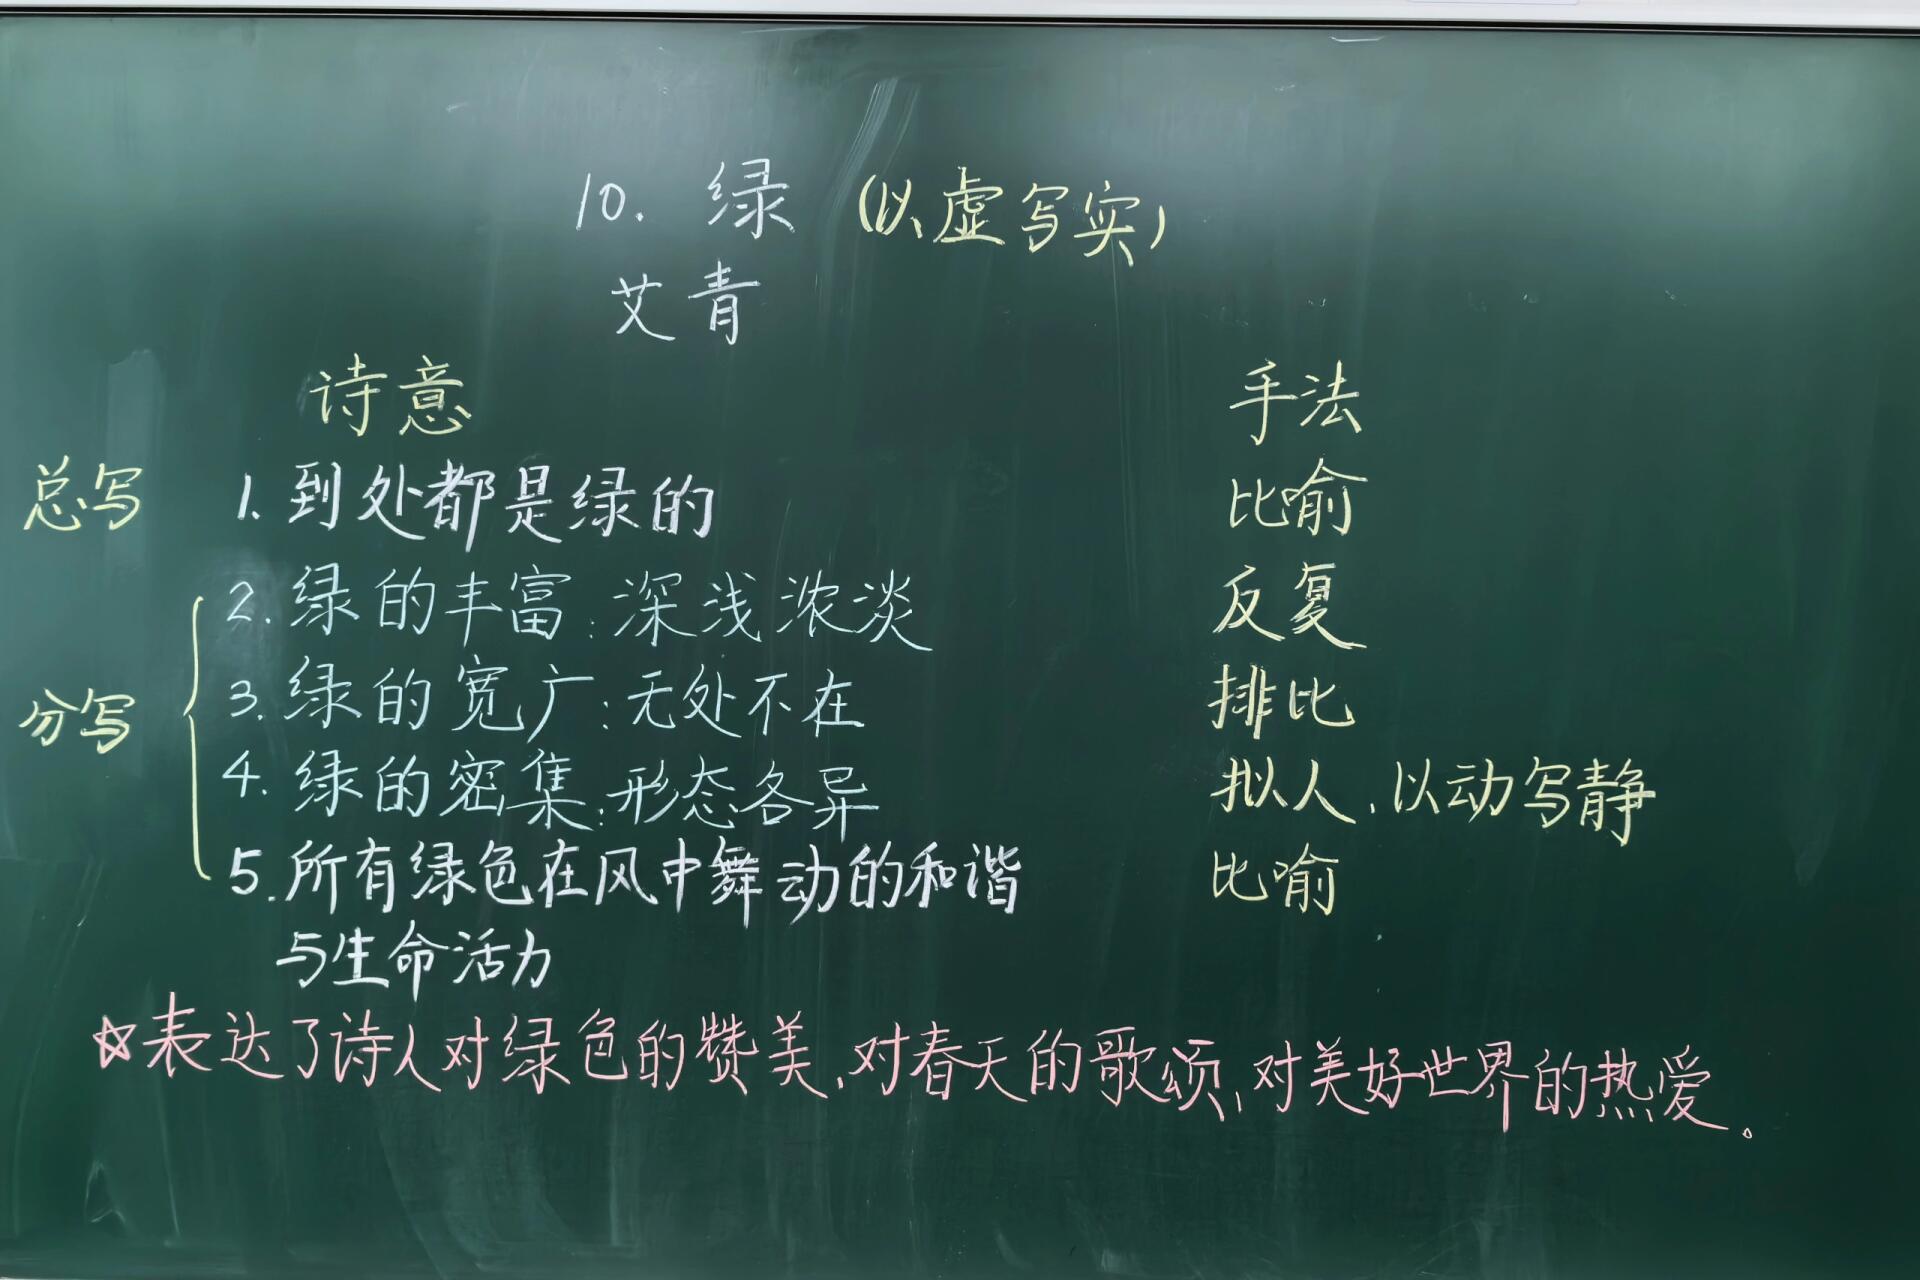 10. 绿 (以虚写实)
艾青
诗意 手法
总写 1. 到处都是绿的 比喻
2. 绿的丰富:深浅浓淡 反复
分写 3. 绿的宽广:无处不在 排比
4. 绿的密集:形态各异 拟人、以动写静
5. 所有绿色在风中舞动的和谐 比喻
与生命活力
☆表达了诗人对绿色的赞美,对春天的歌颂,对美好世界的热爱。